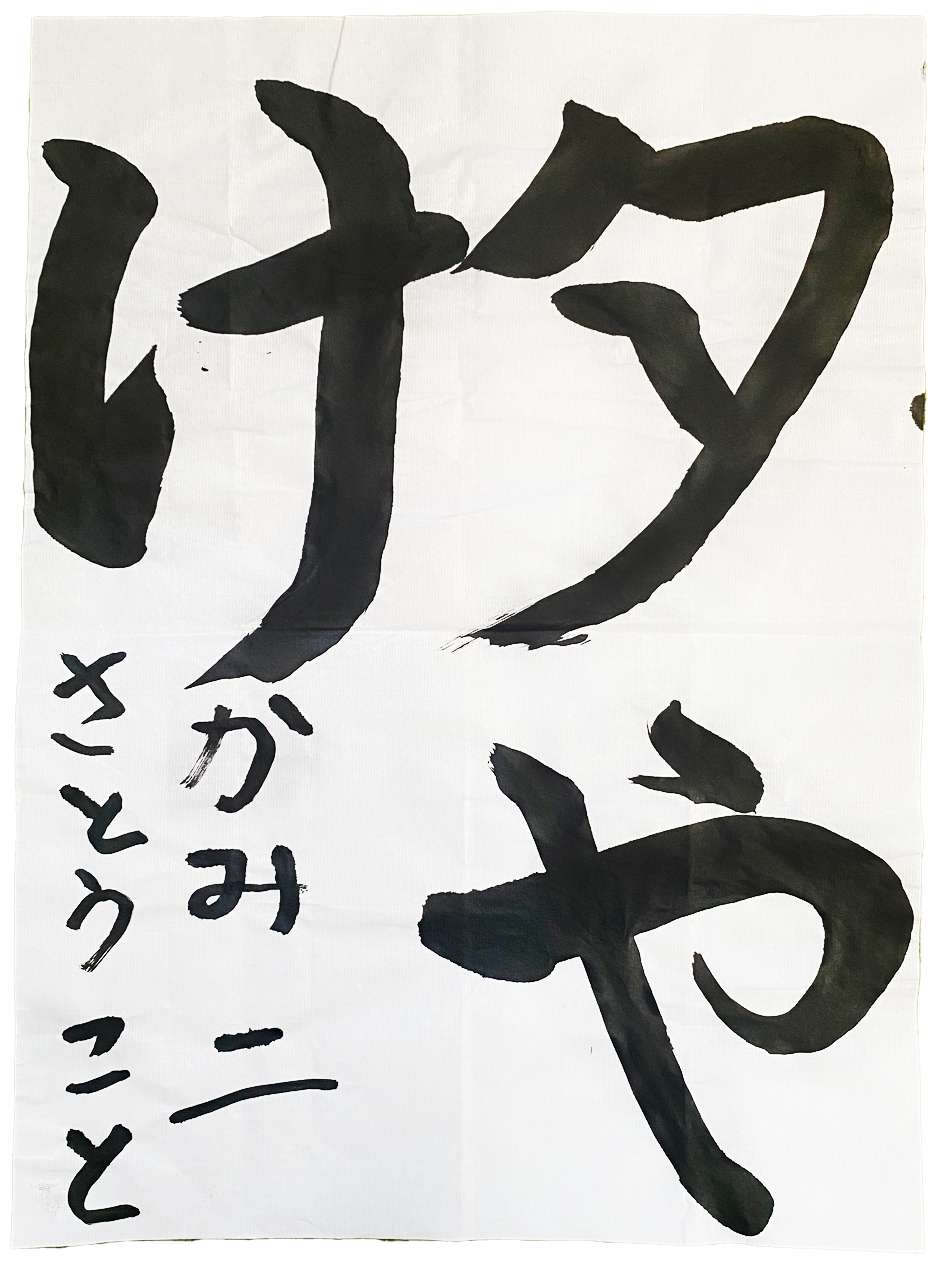 夕や
け
かみ二
さとうこと